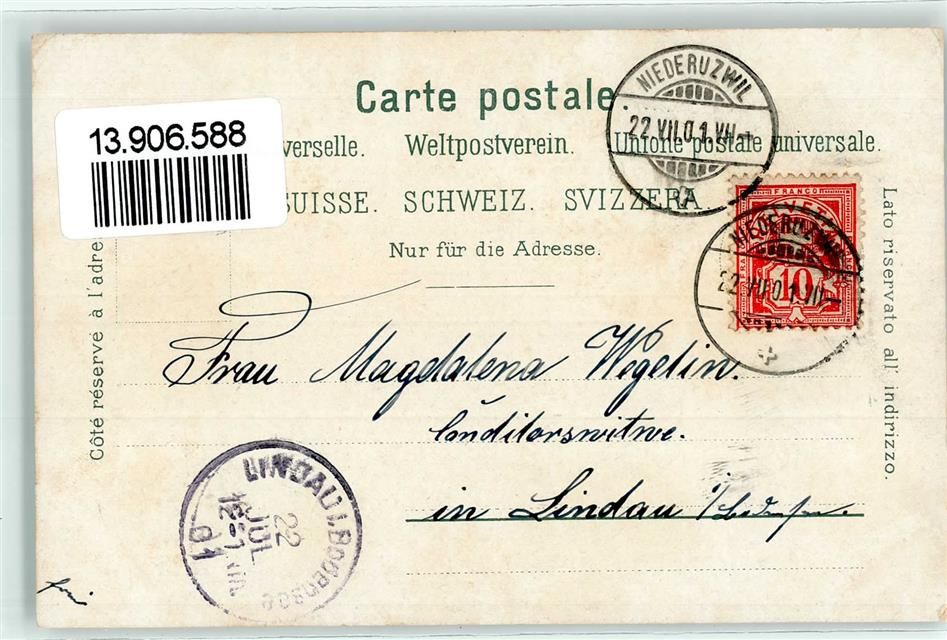 Carte postale.
13.906.588
verselle. Weltpostverein. Unione postale universale.
SUISSE. SCHWEIZ. SVIZZERA.
Nur für die Adresse.
Côté réservé à l'adre
Lato riservato all' indirizzo.
NIEDERUZWIL
22.VII.01.VII-
FRANCO
10
NIEDERUZWIL
22.VII.01.VII-
Frau Magdalena Wegelin.
Conditorswitwe.
in Lindau i/Bodensee.
LINDAU i. Bodensee
22
JUL
12-1 Nm
01